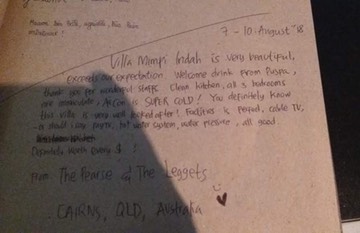 7 - 10. August '18
Villa Mimpi Indah is very beautiful,
exceeds our expectation. Welcome drink from Puspa,
thank you for wonderful staffs. Clean kitchen, all 3 bedrooms
are immaculate. AirCon is SUPER COLD! You definitely know
this villa is very well looked after! Facilities is perfect, cable TV,
water system, water pressure, all good.
Definitely worth every $ !
From The Pearse & The Leggets
CAIRNS, QLD, Australia